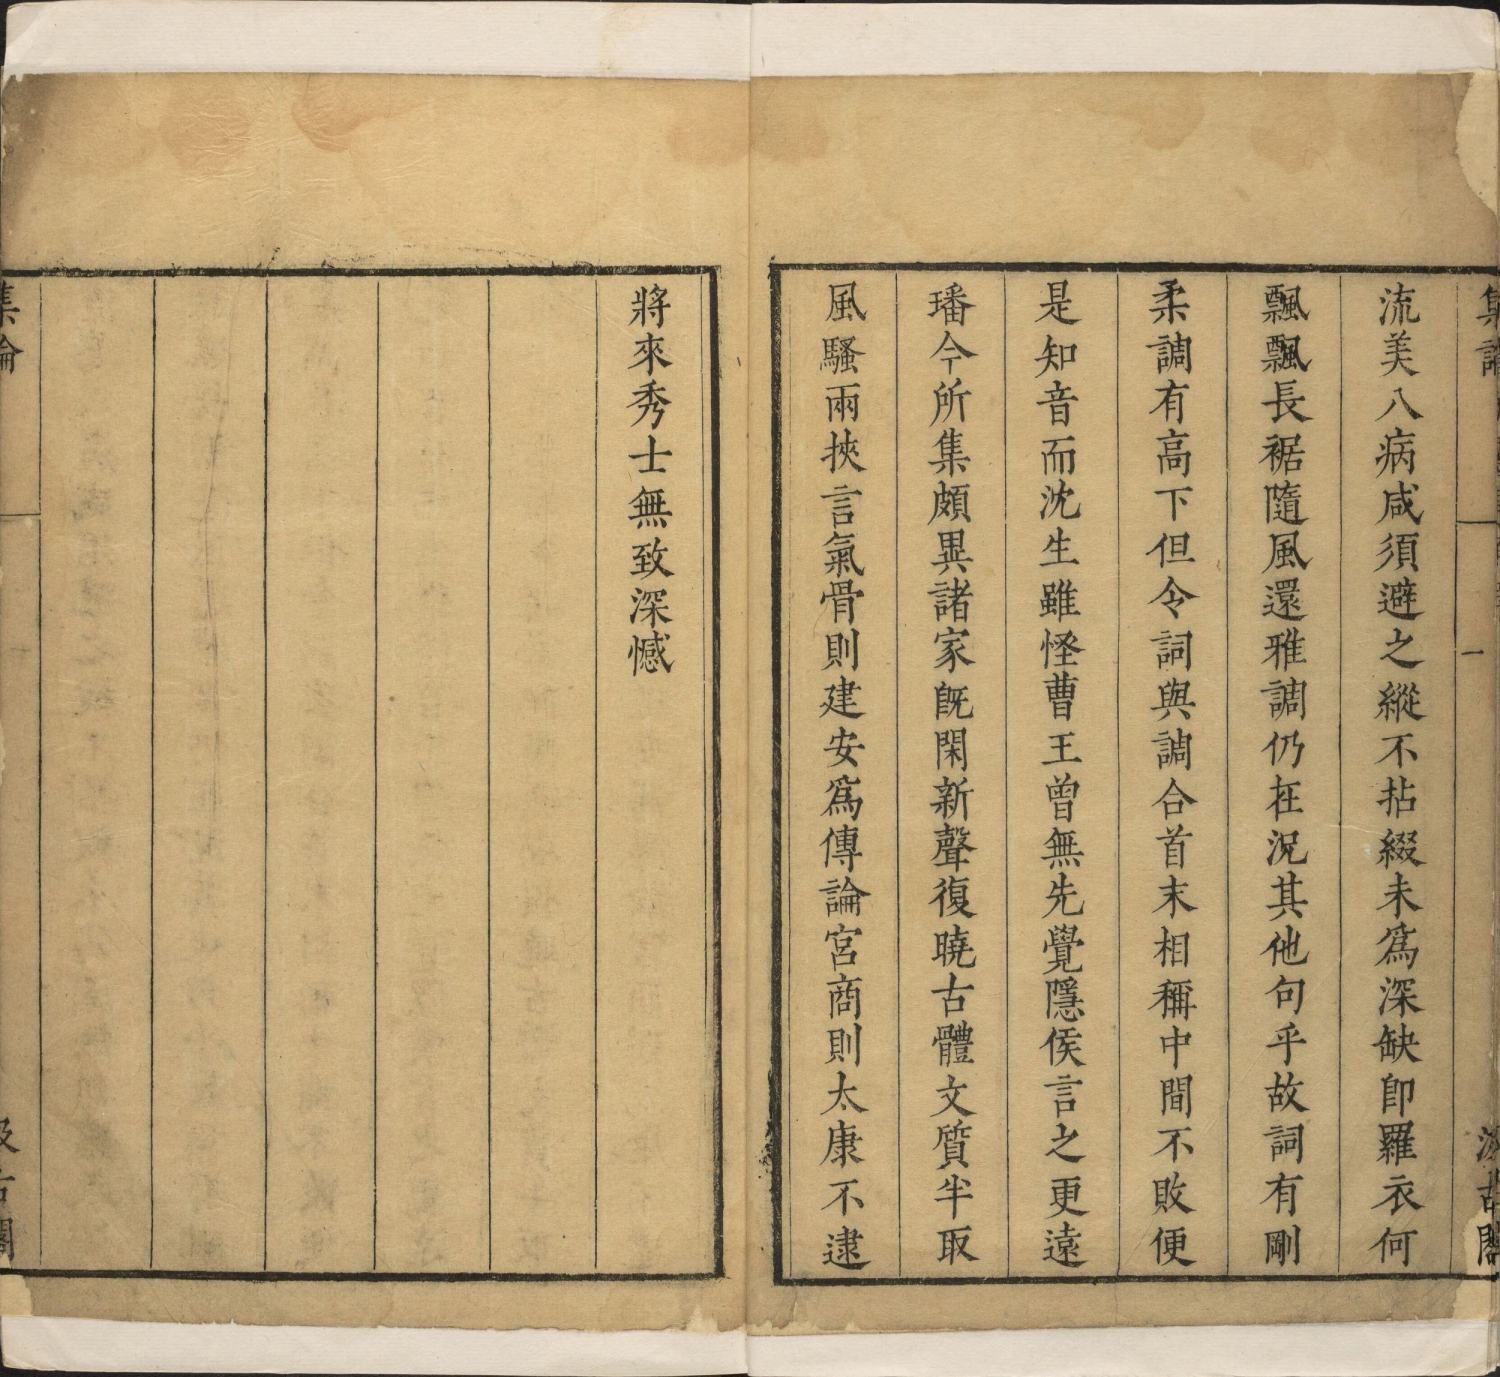 集論
一
汲古閣
流美八病咸須避之縱不拈綴未爲深缺卽羅衣何
飄飄長裾隨風還雅調仍在況其他句乎故詞有剛
柔調有高下但令詞與調合首末相稱中間不敗便
是知音而沈生雖怪曹王曾無先覺隱侯言之更遠
璠今所集頗異諸家旣閑新聲復曉古體文質半取
風騷兩挾言氣骨則建安爲傳論宮商則太康不逮
將來秀士無致深憾
集論
汲古閣